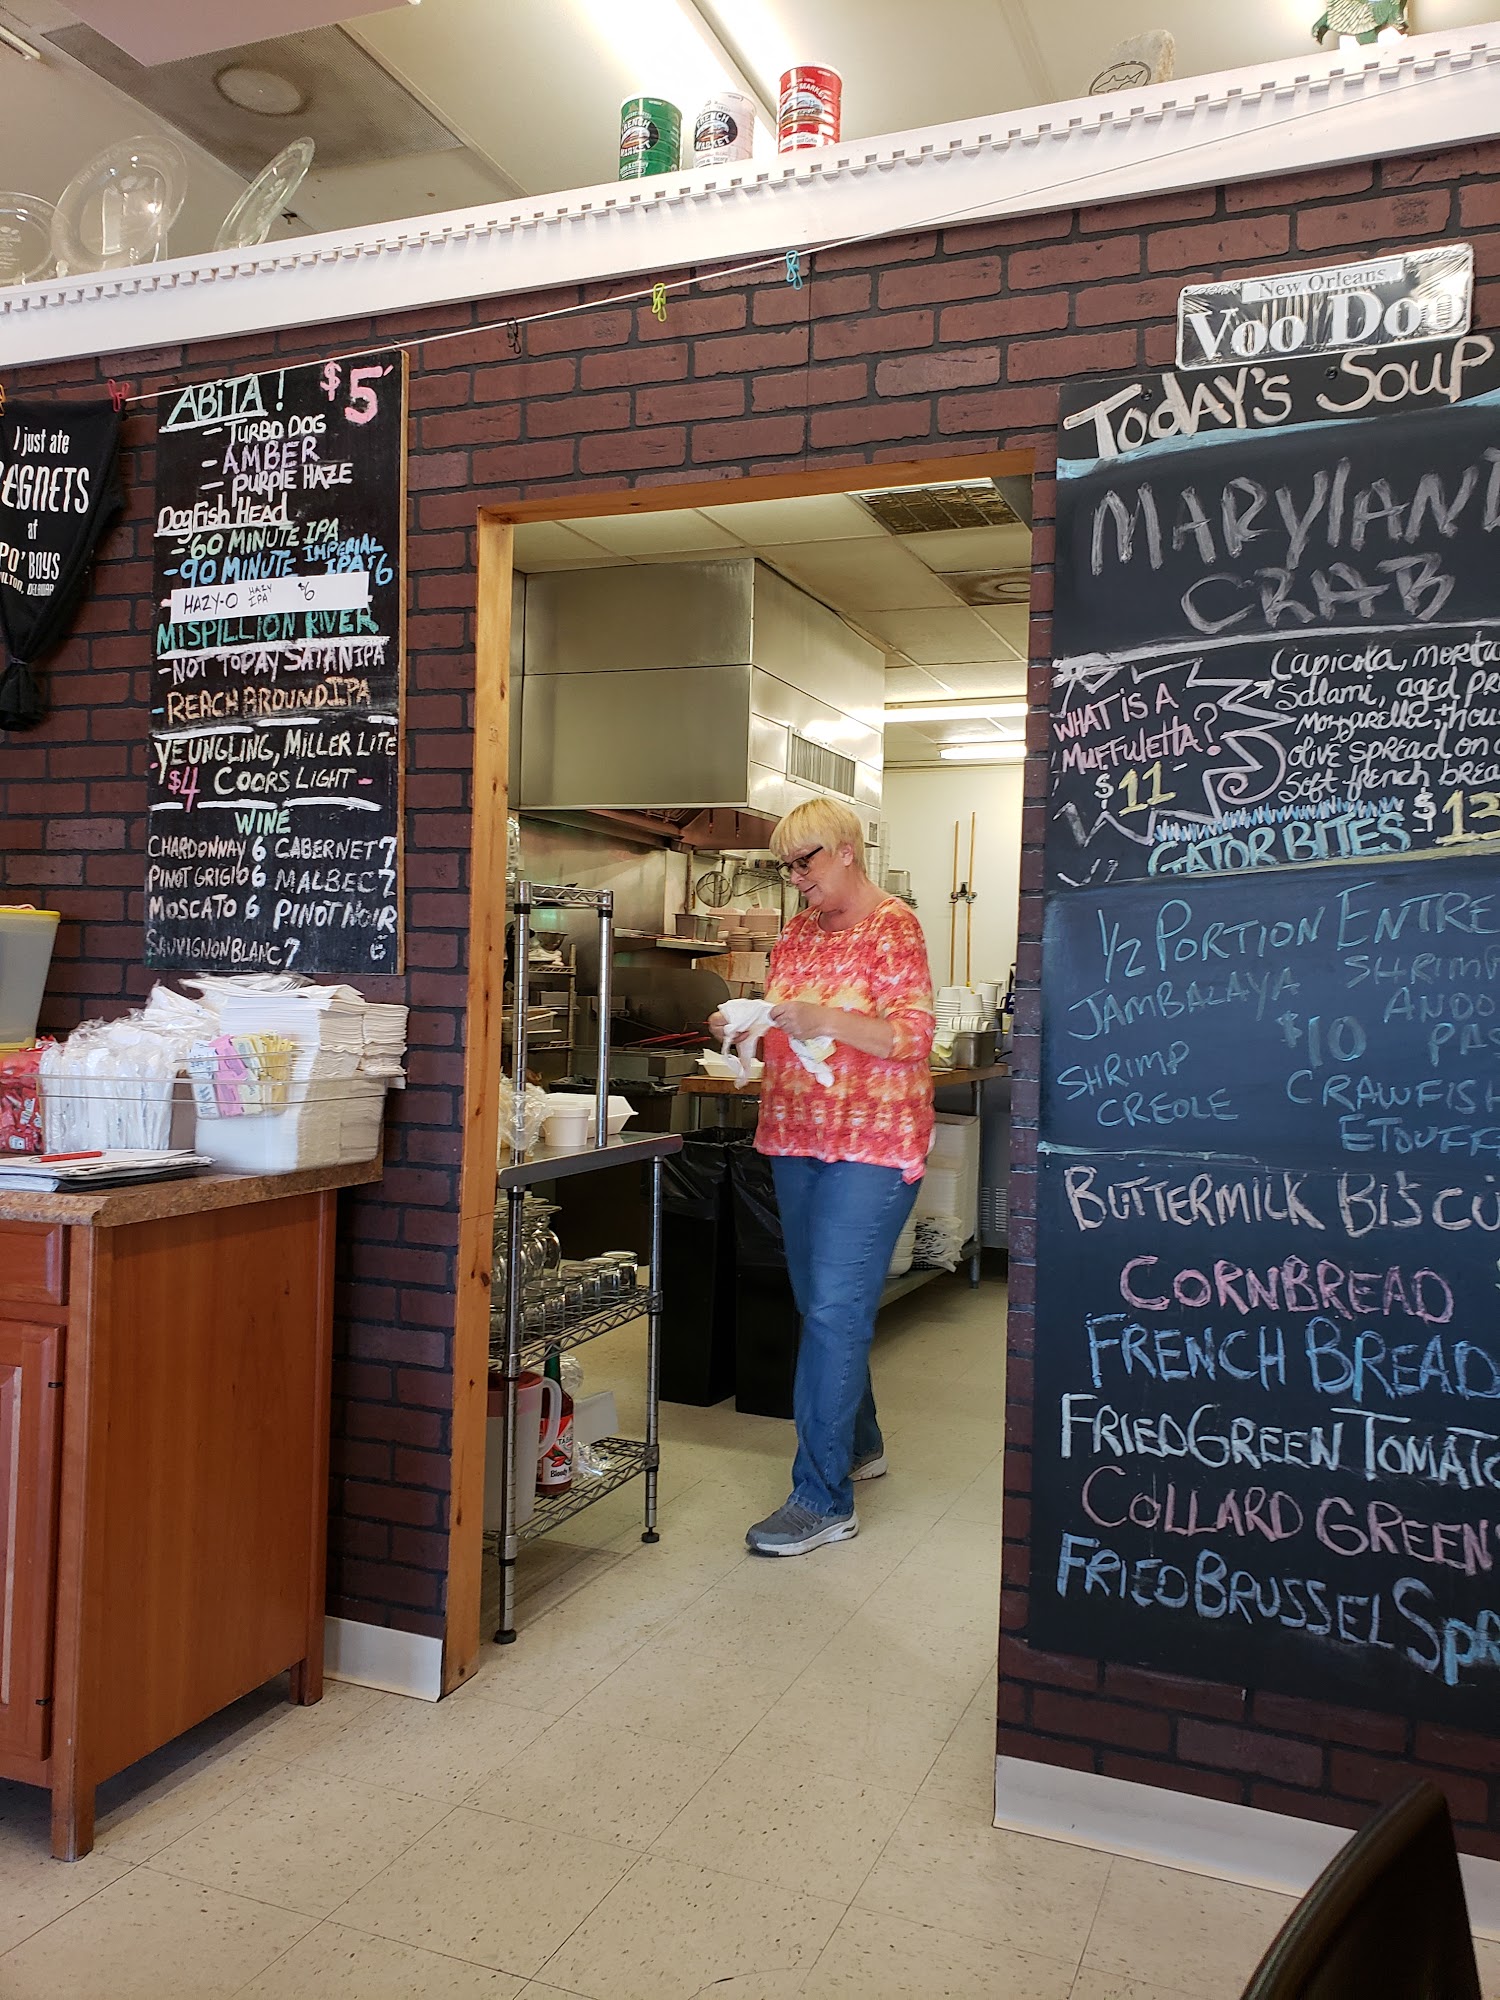 FRENCH
MARKET
FRENCH
MARKET
MARKET
I just ate
at
PO' BOYS
ABiTA! $5
- TURBO DOG
- AMBER
- PURPLE HAZE
DogFish Head
- 60 MINUTE IPA
- 90 MINUTE IMPERIAL IPA $6
HAZY-O HAZY IPA $6
MISPILLION RIVER
- NOT TODAY SATAN IPA
- REACH AROUND IPA
- YEUNGLING, MILLER LITE
$4 COORS LIGHT -
WINE
CHARDONNAY 6 CABERNET 7
PINOT GRIGIO 6 MALBEC 7
MOSCATO 6 PINOT NOIR
SAUVIGNON BLANC 7 6
New Orleans
VOO DOO
TODAY'S SOUP
MARYLAND
CRAB
WHAT IS A
MUFFULETTA?
$11
Capicola,
Salami, aged
Mozzarella,
olive spread on
Soft french
GATOR BITES $12
1/2 PORTION
JAMBALAYA
$10
SHRIMP
CREOLE
BUTTERMILK
CORNBREAD
FRENCH BREAD
FRIED GREEN
COLLARD GREENS
FRIED BRUSSEL
Bloody